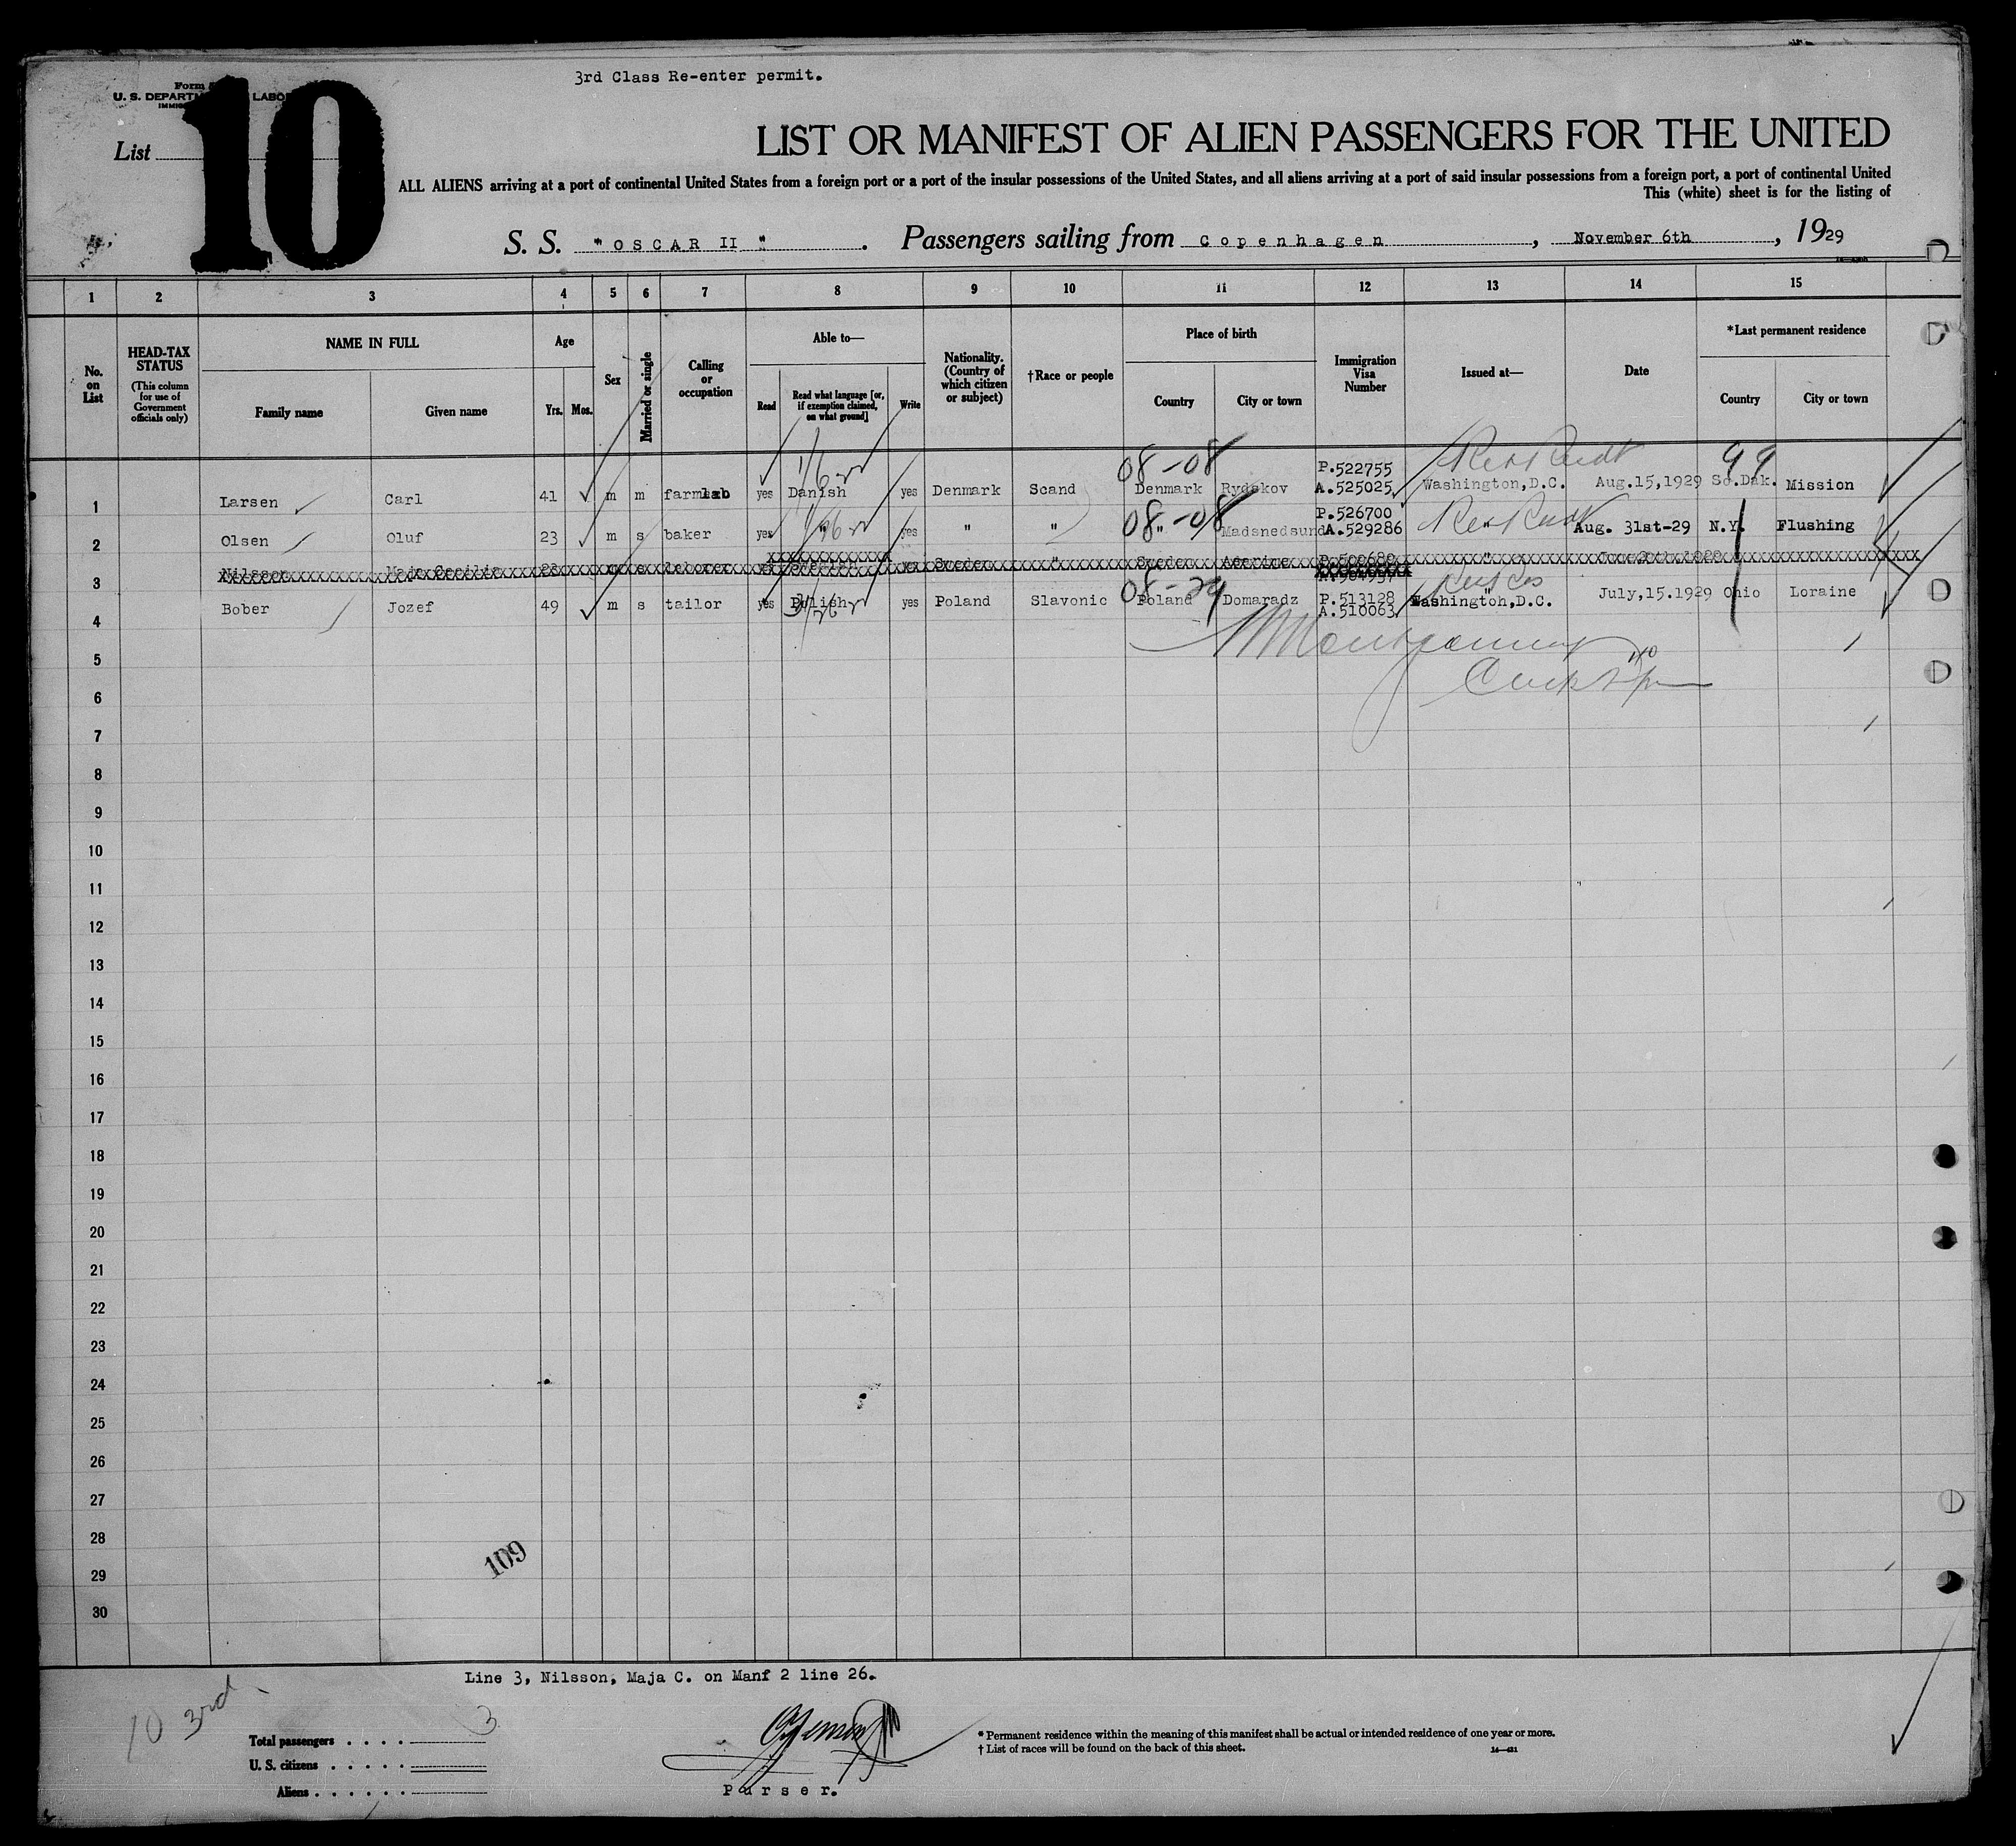 3rd Class Re-enter permit.
Form
U. S. DEPARTM LABO
10
List
LIST OR MANIFEST OF ALIEN PASSENGERS FOR THE UNITED
ALL ALIENS arriving at a port of continental United States from a foreign port or a port of the insular possessions of the United States, and all aliens arriving at a port of said insular possessions from a foreign port, a port of continental United
This (white) sheet is for the listing of
S. S. "OSCAR II". Passengers sailing from Copenhagen, November 6th, 1929
1 2 3 4 5 6 7 8 9 10 11 12 13 14 15
No. on List
HEAD-TAX STATUS
(This column for use of Government officials only)
NAME IN FULL
Family name
Given name
Age
Yrs. Mos.
Sex
Married or single
Calling or occupation
Able to—
Read
Read what language [or, if exemption claimed, on what ground]
Write
Nationality. (Country of which citizen or subject)
†Race or people
Place of birth
Country
City or town
Immigration Visa Number
Issued at—
Date
*Last permanent residence
Country
City or town
08-08
99
P.522755
1 Larsen Carl 41 m m farmlab yes Danish yes Denmark Scand Denmark Rydskov A.525025 Washington,D.C. Aug.15,1929 So.Dak. Mission
08-08
P.526700
2 Olsen Oluf 23 m s baker yes " yes " " " Madsnedsund A.529286 Aug. 31st-29 N.Y. Flushing
3 Nilsson Maja Cecilia Sweden " Sweden
08-29
4 Bober Jozef 49 m s tailor yes Polish yes Poland Slavonic Poland Domaradz P.513128 Washington,D.C. July,15.1929 Ohio Loraine
A.510063
5
6
7
8
9
10
11
12
13
14
15
16
17
18
19
20
21
22
23
24
25
26
27
28
29
30
109
Line 3, Nilsson, Maja C. on Manf 2 line 26.
10 3rd
Total passengers . . . . 3
U. S. citizens . . . . .
Aliens . . . . . .
Purser.
* Permanent residence within the meaning of this manifest shall be actual or intended residence of one year or more.
† List of races will be found on the back of this sheet.